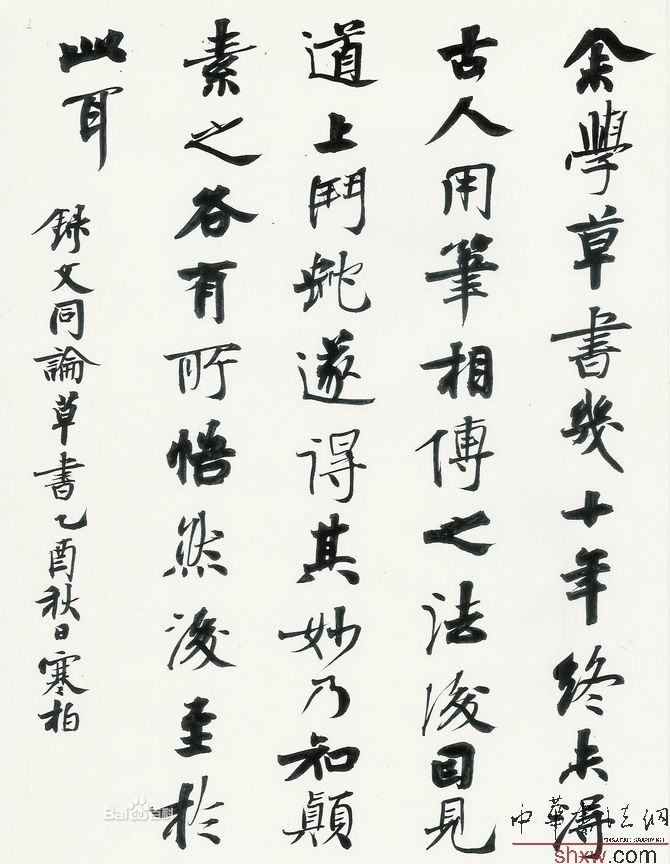 余學草書幾十年終未得
古人用筆相傳之法後因見
道上鬥蛇遂得其妙乃知顛
素之各有所悟然後至於
此耳
錄文同論草書乙酉秋日寒柏
Bai百科
中華書法網
shxw.com